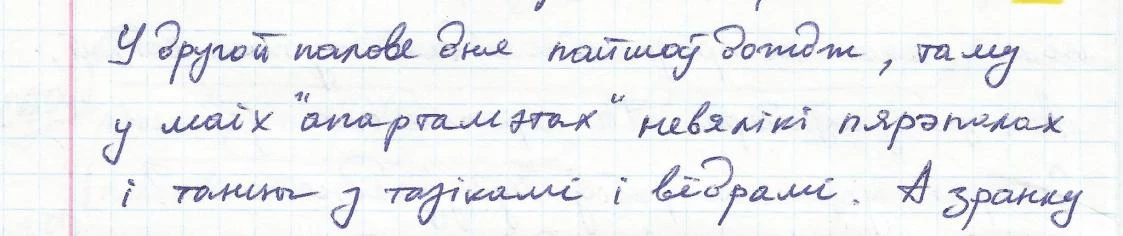 У другой палове дня пайшоў дождж, таму
у маіх "апартамэтах" невялікі пярэпалах
і танцы з тазікамі і вёдрамі. А зранку